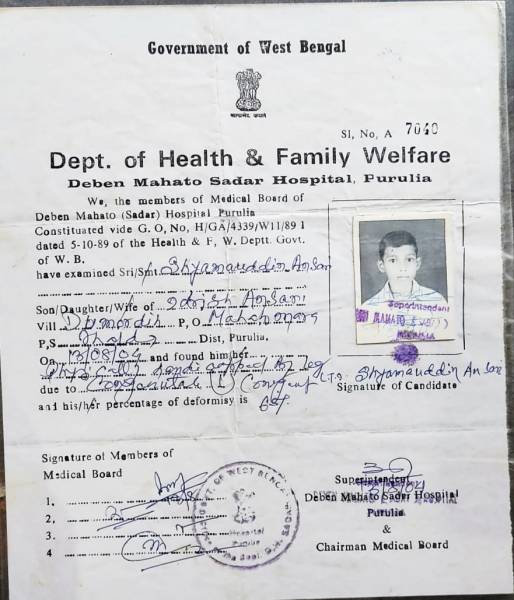 Government of West Bengal
सत्यमेव जयते
Sl, No, A 7040
Dept. of Health & Family Welfare
Deben Mahato Sadar Hospital, Purulia
We, the members of Medical Board of
Deben Mahato (Sadar) Hospital Purulia
Constituated vide G. O, No, H/GA/4339/W11/89 1
dated 5-10-89 of the Health & F, W. Deptt. Govt.
of W. B.
have examined Sri/Smt Shyamauddin Ansari
Son/Daughter/Wife of Idrish Ansari
Vill Dumardih P, O Mahatomara
P, S Jhalda Dist, Purulia,
On 13/08/04 and found him her
Physically handicapped by leg
due to (L)
and his/her percentage of deformisy is
Superintendent
Shyamauddin Ansari
Signature of Candidate
Signature of Members of
Medical Board
1.
2.
3.
4
GOVERNMENT OF WEST BENGAL
Hospital
Purulia
Superintendent
Deben Mahato Sadar Hospital
Purulia
&
Chairman Medical Board